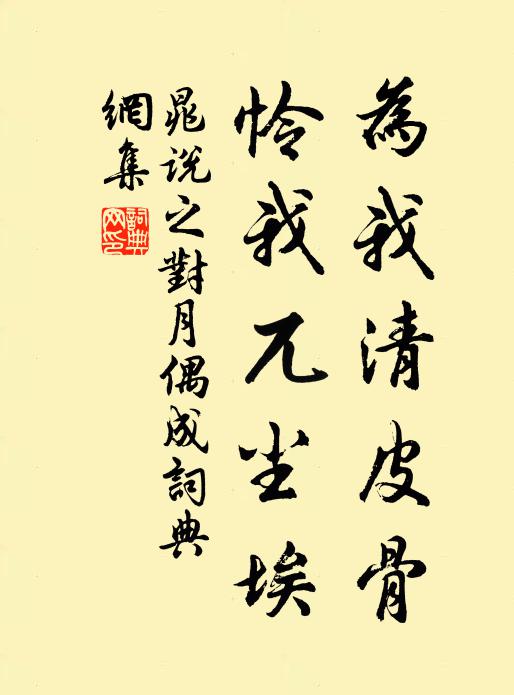 為我清皮骨
怜我兀尘埃
晁說之對月偶成詞典
網集
詞典
网印